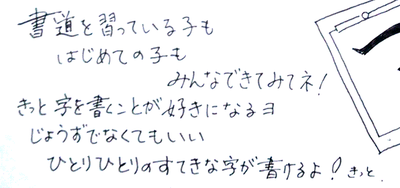 書道を習っている子も
はじめての子も
みんなできてみてネ!
きっと字を書くことが好きになるヨ
じょうずでなくてもいい
ひとりひとりのすてきな字が書けるよ!きっと